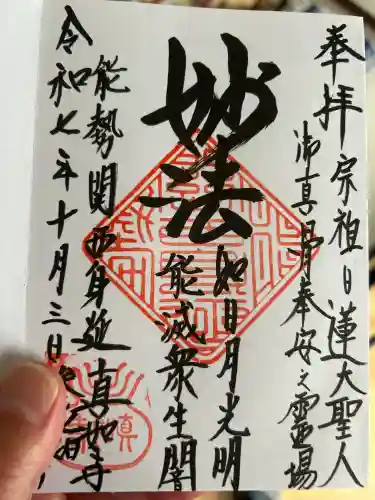 奉拝 宗祖日蓮大聖人
御真骨奉安之霊場
妙法
如日月光明
能滅衆生闇
能勢関西身延 真如寺
令和七年十月三日